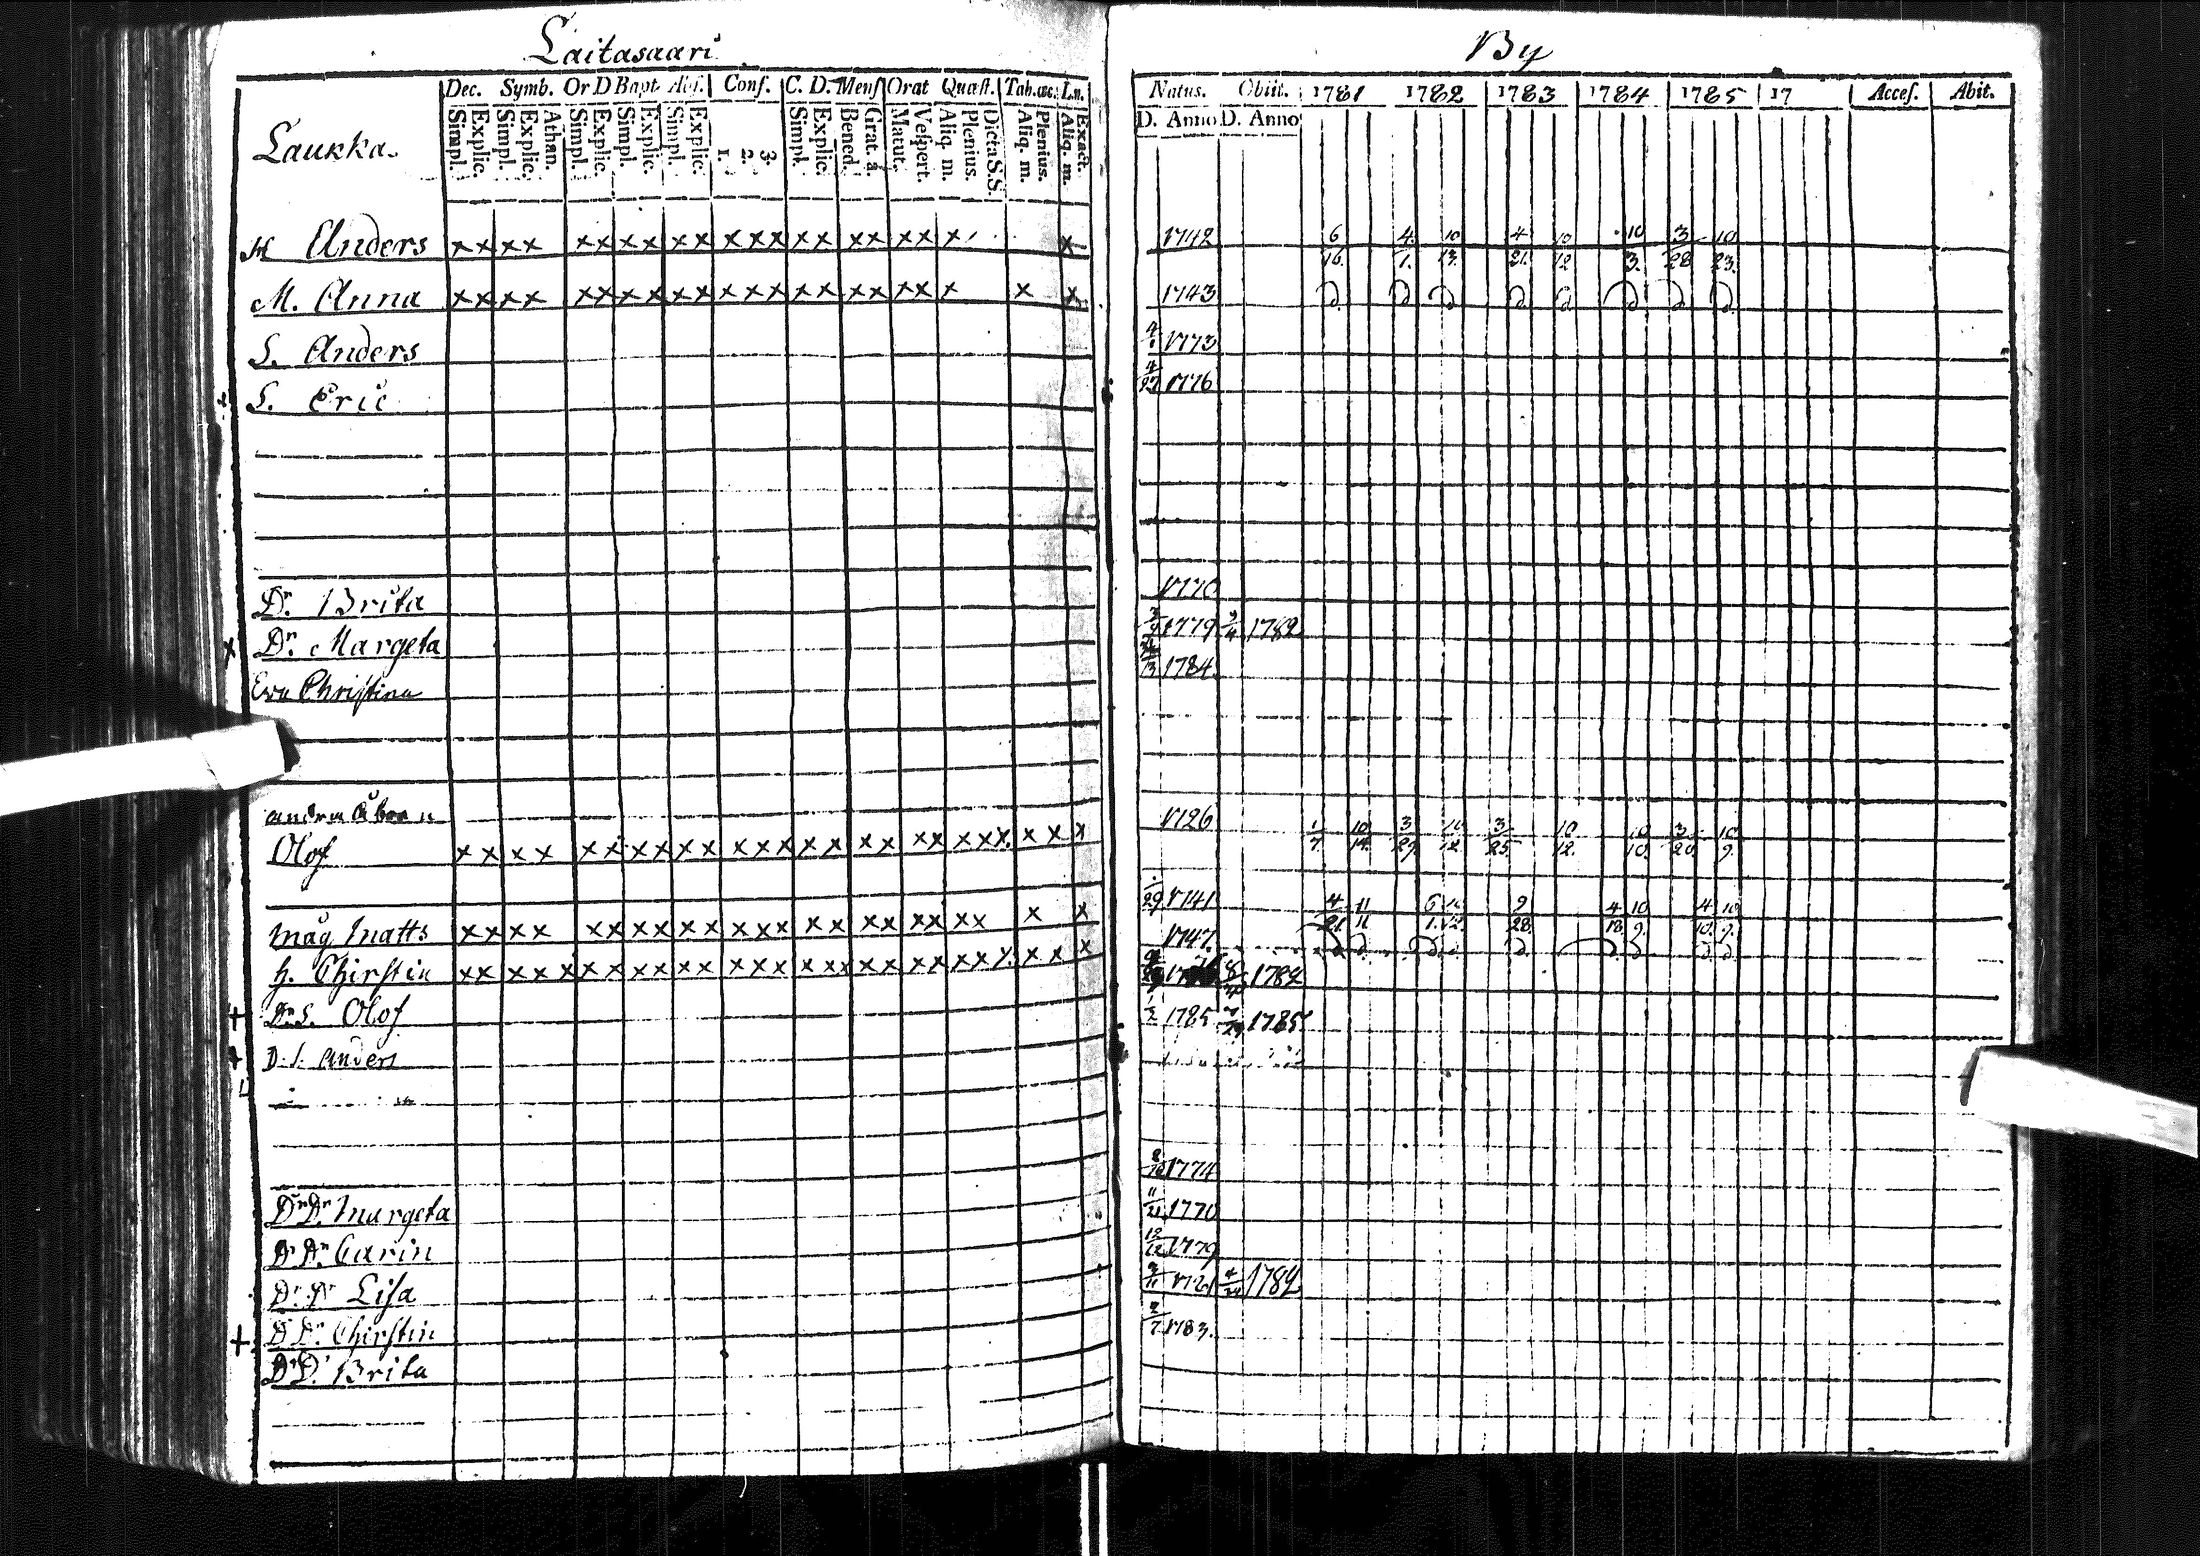 Laitasaari
By
Dec. Symb. Or D Bapt Abs. Conf. C. D. Mens Orat Quæst. Tab.œc. Ln.
Natus. Obiit. 1781 1782 1783 1784 1785 17 Acces. Abit.
Laukka.
Simpl. Explic. Simpl. Explic. Athan. Simpl. Explic. Simpl. Explic. Simpl. Explic. 1. 2. 3. Simpl. Explic. Bened. Grat. a. Matut. Vespert. Aliq. m. Plenius. Dicta S.S. Aliq. m. Plenius. Aliq. m. Exact.
D. Anno D. Anno
Anders x x x x x x x x x x x x x x x x x x x x x 1742 6/16. 4/1. 10/13. 4/21. 10/12 10/3. 3/28 10/23.
M. Anna x x x x x x x x x x x x x x x x x x x x x 1743
S. Anders 1773
S. Eric 4/27 1776
Dr. Brita 1770
x Dr. Margeta 1779 1782
Eva Christina 1784
Olof x x x x x x x x x x x x x x x x x x x x x x x x 1726 1/7. 10/14. 3/29. 10/12. 3/25. 10/12. 10/10. 3/20. 10/9.
måg Matts x x x x x x x x x x x x x x x x x x x x x x x 29 1741 4/21. 11/11 6/1. 10/12. 9/28. 4/18. 10/9. 4/10. 10/9.
h. Chirstin x x x x x x x x x x x x x x x x x x x x x x x x 1747
+ Dr. S. Olof 1782
+ D. S. Anders 1785 1785
Dr Dr. Margeta 1774
Dr Dr. Carin 11/21 1770
Dr Dr Lisa 12/12 1779
+ Dr Dr. Chirstin 1782
Dr D. Brita 2/7 1783.